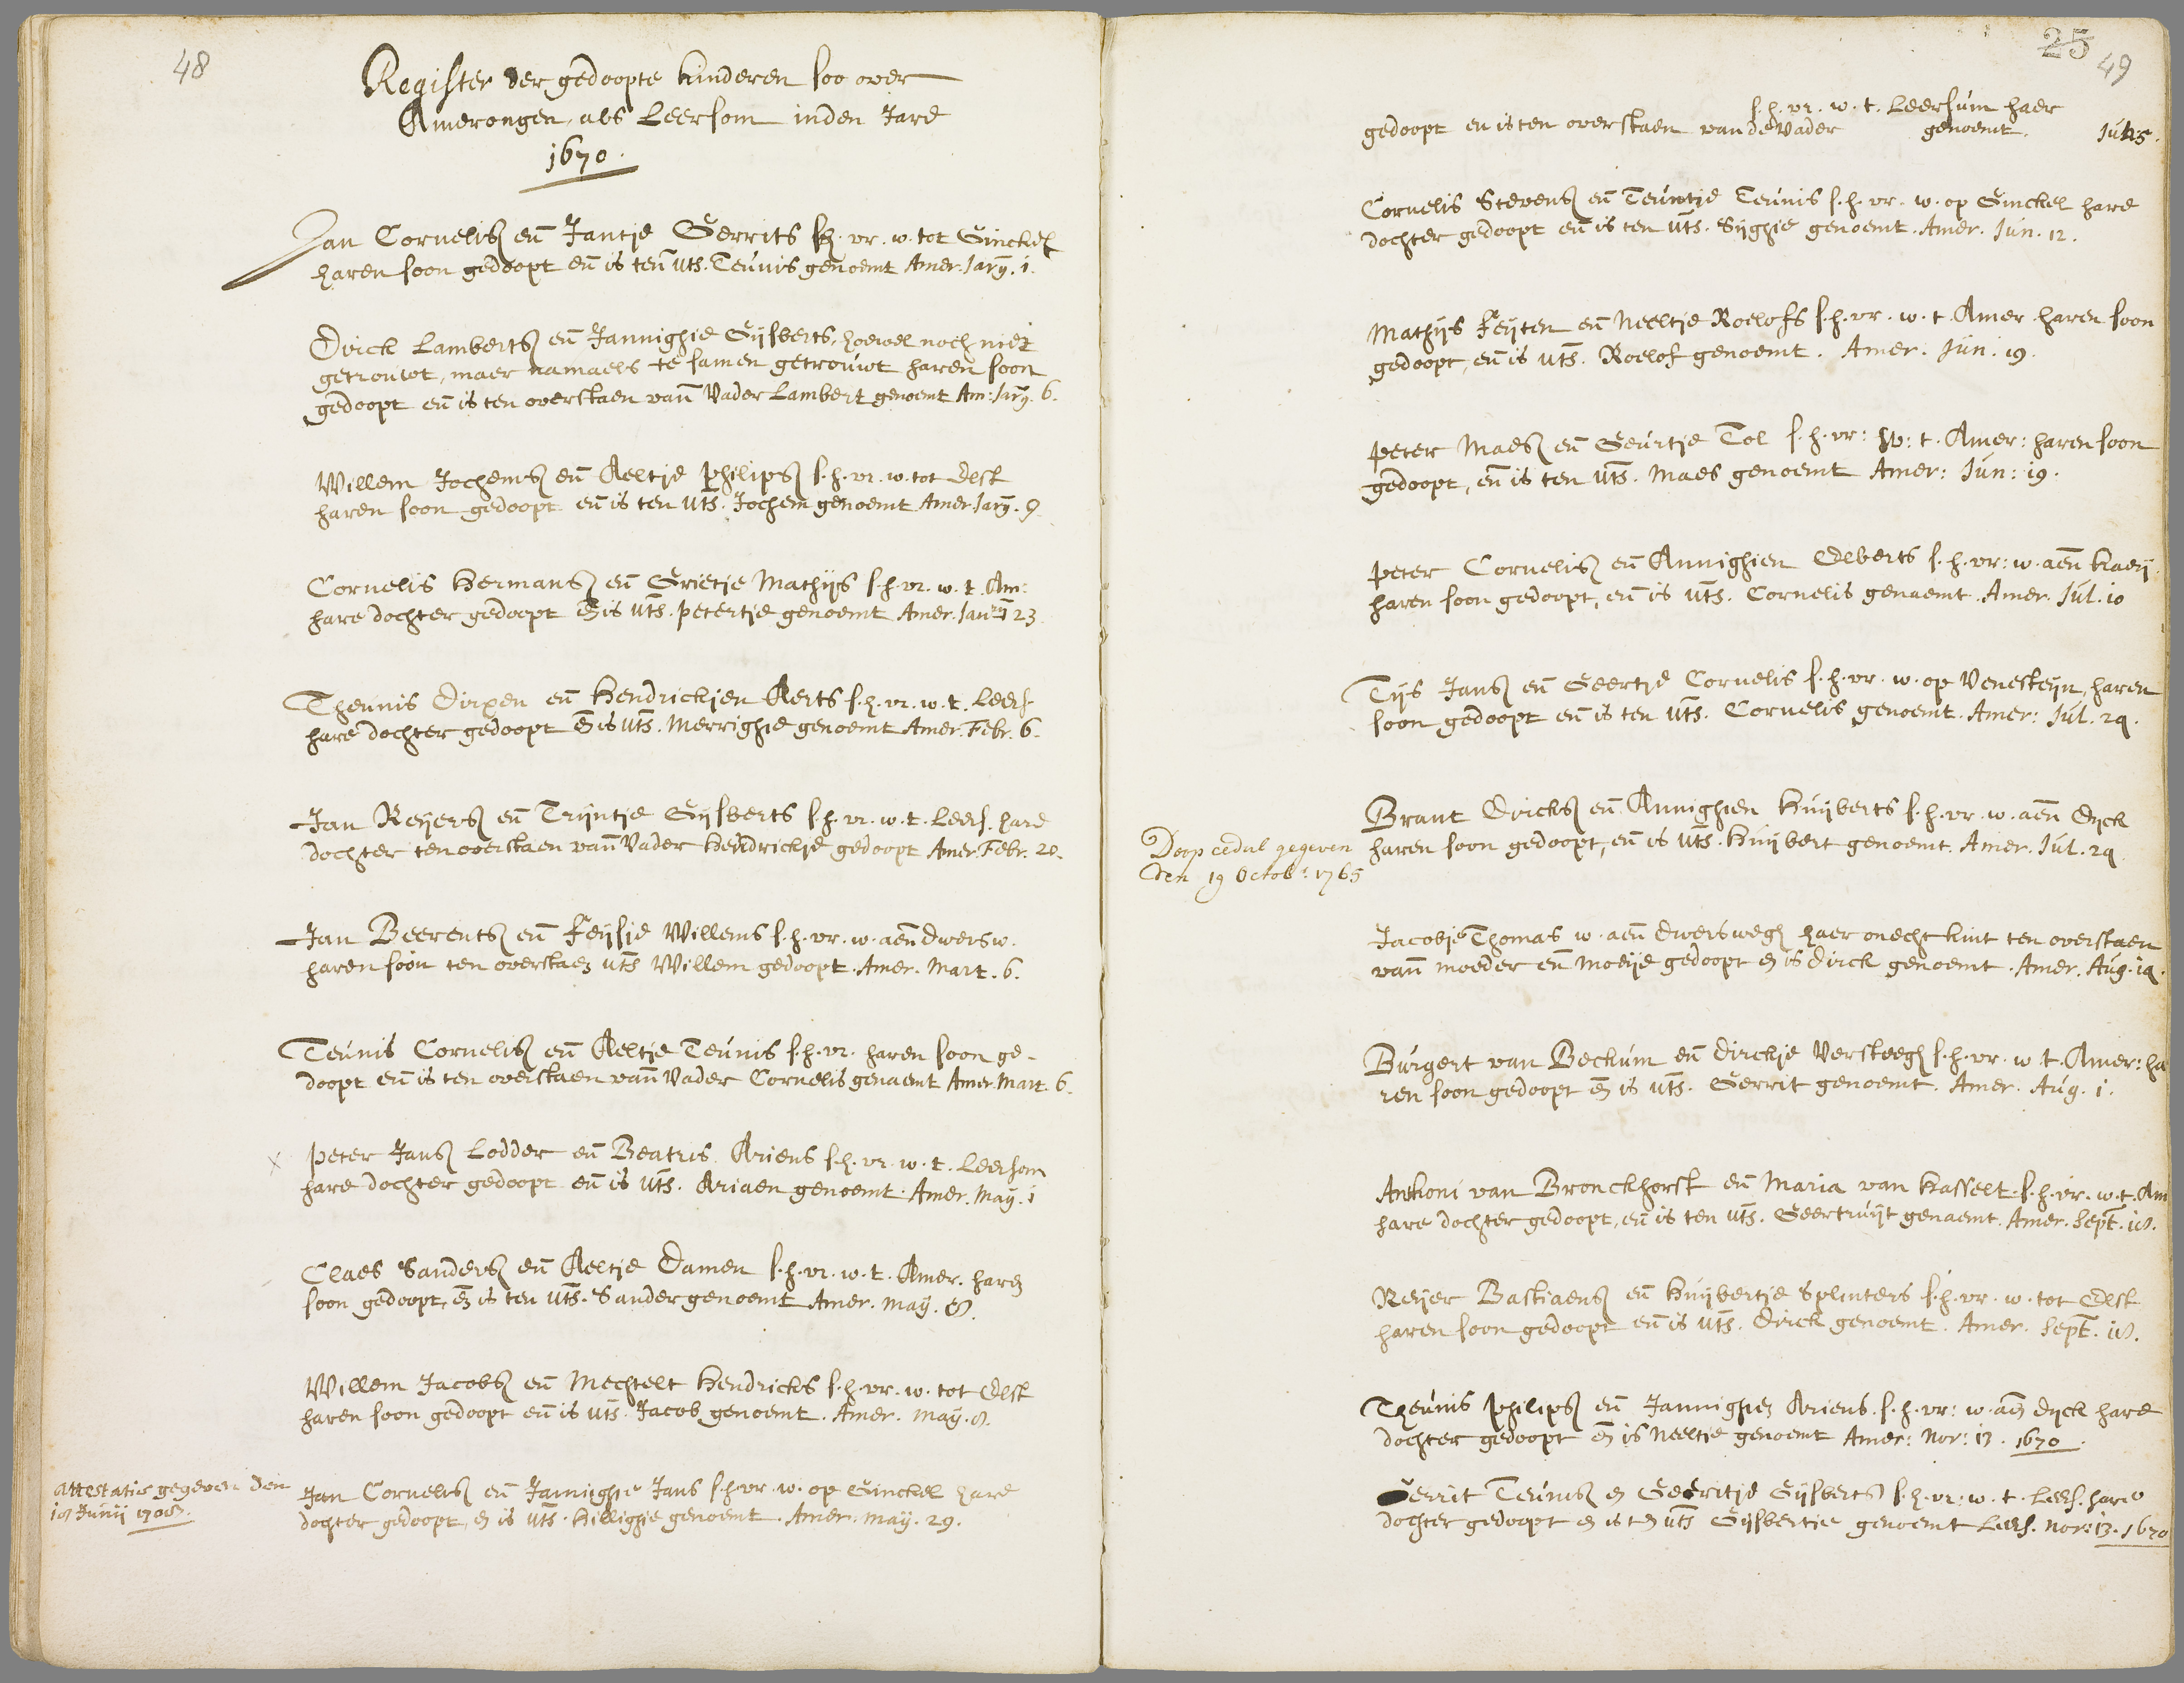 48
Register der gedoopte kinderen soo over
Amerongen, als Leersom inden Jare
1670.
Jan Cornelisz en Jantje Gerrits s.h.vr.w. tot Ginckel
haren soon gedoopt en is ten uts. Teunis genoemt Amer. Jary. 1.
Dirck Lambertsz en Jannighie Gijsberts, hoewel noch niet
getrouwt, maer namaels te samen getrouwt haren soon
gedoopt en is ten overstaen van Vader Lambert genoemt Am: Jary. 6.
Willem Jochemsz en Aeltje Philipsz s.h.vr.w. tot Elst
haren soon gedoopt en is ten uts. Jochem genoemt Amer. Jary. 9
Cornelis Hermansz en Grietje Mathijs s.h.vr.w.t. Am:
hare dochter gedoopt en is uts. Petertje genoemt Amer. Jany 23
Theunis Dirxen en Hendrickjen Aerts s.h.vr.w.t. Leers.
hare dochter gedoopt en is uts. Merrighie genoemt Amer. Febr. 6.
Jan Reijersz en Trijntje Gijsberts s.h.vr.w.t. Leers. hare
dochter ten overstaen van Vader Hendrickje gedoopt Amer. Febr. 20.
Jan Beerentsz en Feijsje Willems s.h.vr.w. aen dwersw.
haren soon ten overstaen uts Willem gedoopt. Amer. Mart. 6.
Teunis Cornelisz en Aeltje Teunis s.h.vr. haren soon ge-
doopt en is ten overstaen van Vader Cornelis genaemt Amer. Mart. 6.
x Peter Jansz Lodder en Beatris Ariens s.h.vr.w.t. Leersom
hare dochter gedoopt en is uts. Ariaen genoemt. Amer. May. 1
Claes Sandersz en Aeltje Damen s.h.vr.w.t. Amer. haren
soon gedoopt, en is ten uts. Sander genoemt Amer. May. 8.
Willem Jacobsz en Mechtelt Hendricks s.h.vr.w. tot Elst
haren soon gedoopt en is uts. Jacob genoemt. Amer. May. 8.
Attestatie gegeven den
18 Junij 1708.
Jan Cornelisz en Jannighie Jans s.h.vr.w. op Ginckel hare
dochter gedoopt, en is uts. Hillighie genoemt. Amer. May. 29.
25
49
s.h.vr.w.t. Leersum haer
gedoopt en is ten overstaen van de Vader genoemt. Jun 5.
Cornelis Stevensz en Teuntje Teunis s.h.vr.w. op Ginckel hare
dochter gedoopt en is ten uts. Sijghie genoemt. Amer. Jun. 12.
Mathijs Feijten en Neeltje Roelofs s.h.vr.w.t. Amer haren soon
gedoopt, en is uts. Roelof genoemt. Amer. Jun. 19.
Peter Maesz en Geurtje Tol s.h.vr: w: t. Amer: haren soon
gedoopt, en is ten uts. Maes genoemt Amer: Jun: 19.
Peter Cornelisz en Annighien Elberts s.h.vr: w. aen Kaeij
haren soon gedoopt, en is uts. Cornelis genaemt. Amer. Jul. 10
Tijs Jansz en Geertje Cornelis s.h.vr.w. op Venesteijn, haren
soon gedoopt en is ten uts. Cornelis genoemt. Amer: Jul. 24.
Doop cedul gegeven
den 19 Octobr: 1765
Brant Dircksz en Annighien Huijberts s.h.vr.w. aen Dyck
haren soon gedoopt, en is uts. Huijbert genoemt. Amer. Jul. 24
Jacobje Thomas w. aen dwerswegh haer onecht kint ten overstaen
van moeder en moeije gedoopt en is Dirck genoemt. Amer. Aug. 14.
Burgert van Beckum en Dirckje Versteegh s.h.vr.w.t. Amer: ha
ren soon gedoopt en is uts. Gerrit genoemt. Amer. Aug. 1.
Anthoni van Bronckhorst en Maria van Hasselt. s.h.vr.w.t. Am
hare dochter gedoopt, en is ten uts. Geertruijt genaemt. Amer. Sept. 18.
Reijer Bastiaensz en Huijbertje Splinters s.h.vr.w. tot Elst
haren soon gedoopt en is uts. Dirck genoemt. Amer. Sept. 18.
Theunis Philipsz en Jannighen Ariens. s.h.vr: w. aen dyck hare
dochter gedoopt en is Neeltje genoemt Amer: Nov: 13. 1670.
Gerrit Teunisz en Geeritje Gijsberts s.h.vr: w.t. Leers. hare
dochter gedoopt en is ten uts Gijsbertje genoemt Leers. Nov: 13. 1670